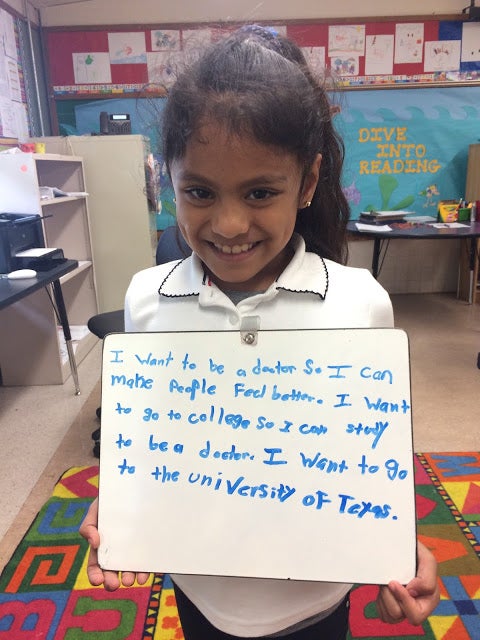 DIVE
INTO
READING
I want to be a doctor So I can
make People Feel better. I want
to go to college so I can study
to be a doctor. I want to go
to the university of Texas.